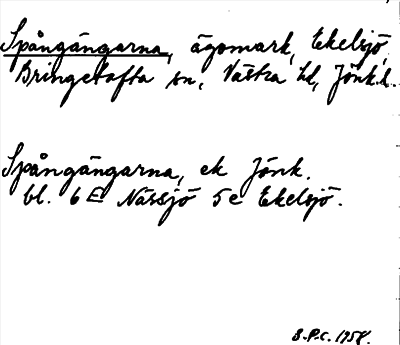 Spångängarna, ägomark, Ekelsjö,
Bringetofta sn, Västra hd, Jönk.l.
Spångängarna, ek Jönk.
bl. 6E Nässjö 5e Ekelsjö.
S.P.C. 1958.